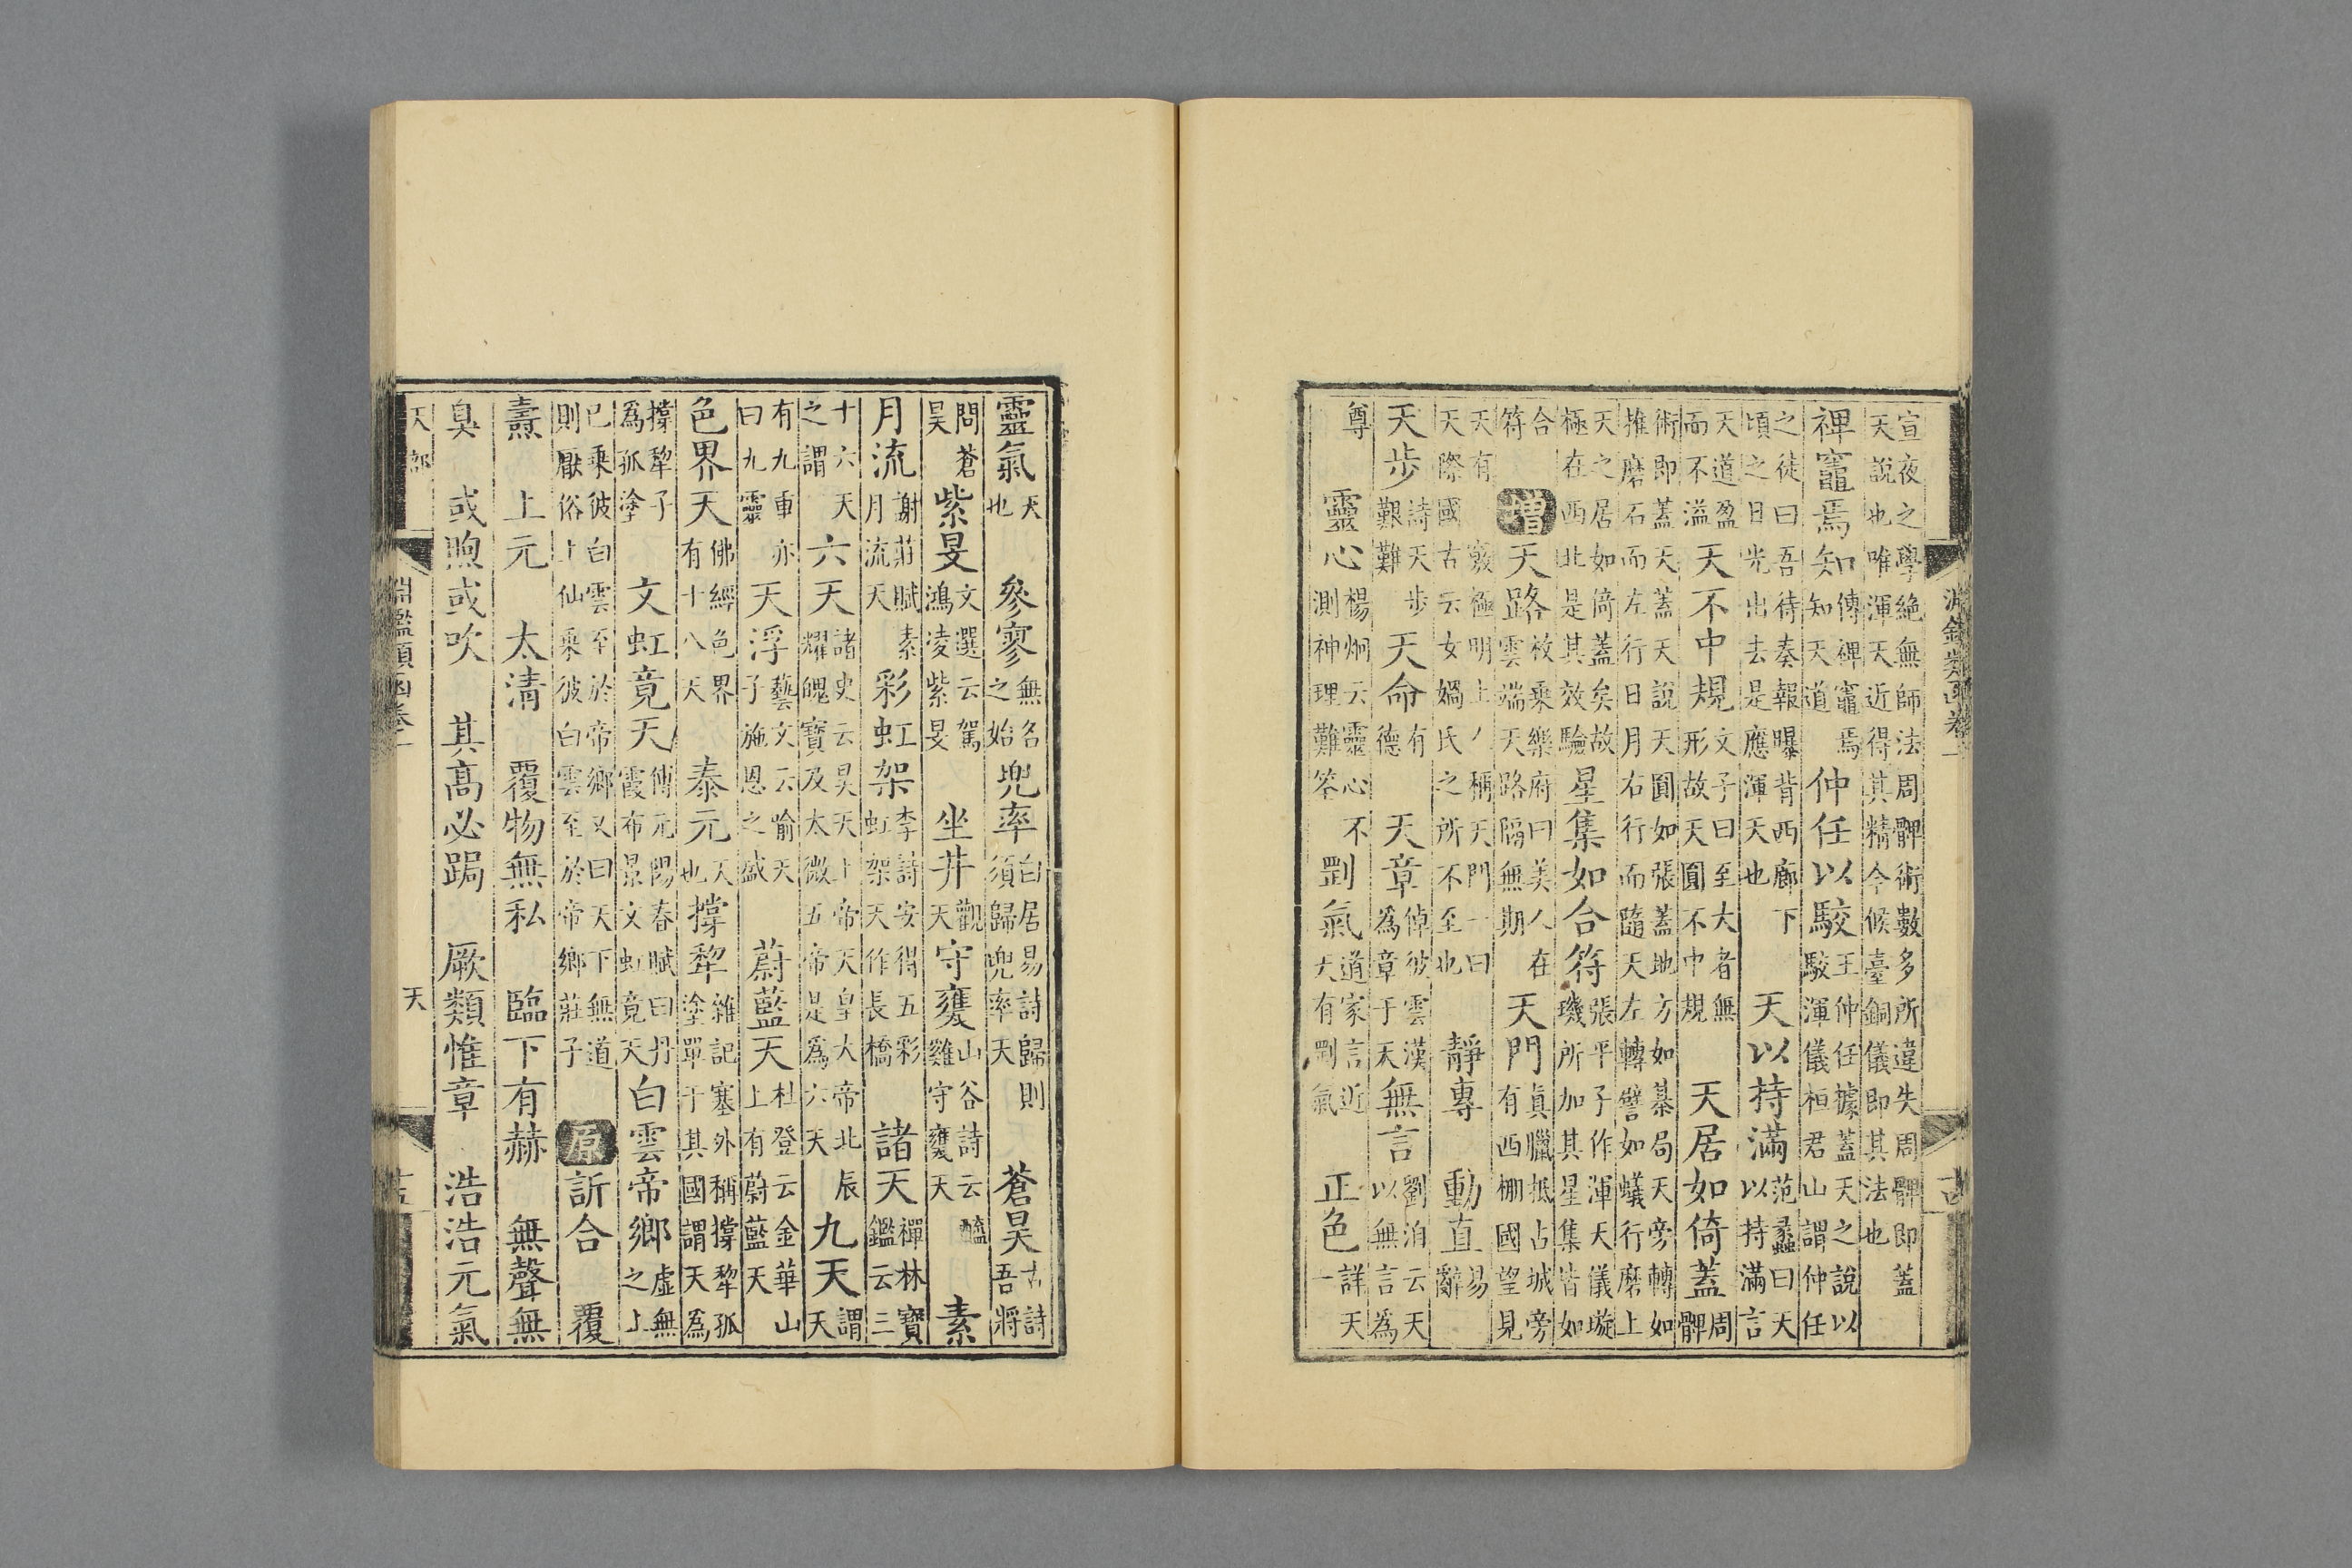 淵鑑類函卷一
宣夜之學絕無師法周髀術數多所違失周髀即蓋天說也唯渾天近得其精今候臺銅儀即其法也
裨竈焉知傳裨竈焉知天道 仲任以駮王仲任據蓋天之說以駮渾儀桓君山謂仲任
之徒曰吾待奏報曝背西廊下頃之日光出去是應渾天也 天以持滿范蠡曰天以持滿言
天道盈而不溢 天不中規文子曰至大者無形故天圓不中規 天居如倚蓋周髀
術即蓋天蓋天說天圓如張蓋地方如棊局天旁轉如推磨石而左行日月右行而隨天左轉譬如蟻行磨上
天之居如倚蓋矣故極在西北是其效驗 星集如合符張平子作渾天儀璇璣所加其星集皆如
合符 增 天路枚乘樂府曰美人在雲端天路隔無期 天門真臘抵占城旁有西棚國望見
天有竅極明上人稱天門一曰天際國古云女媧氏之所不至也 靜專 動直易辭
天步詩天步艱難 天命有德 天章倬彼雲漢為章于天 無言劉洎云天以無言為
尊 靈心楊炯云靈心不測神理難筌 剛氣道家言近天有剛氣 正色詳天一
靈氣天也 參寥無名之始 兜率白居易詩歸則須歸兜率天 蒼昊古詩吾將
問蒼昊 紫旻文選云駕鴻凌紫旻 坐井觀天 守甕山谷詩云醯雞守甕天 素
月流謝莊賦素月流天 彩虹架李詩安得五彩虹架天作長橋 諸天禪林寶鑑云三
十六天之謂 六天諸史云昊天上帝天皇大帝北辰耀魄寶及太微五帝是為六天 九天謂天
有九重亦曰九靈 天浮藝文云喻天子施恩之盛 蔚藍天杜登云金華山上有蔚藍天
色界天佛經色界有十八天 泰元天也 撐犂雜記塞外稱撐犂孤塗單于其國謂天為
撐犂子為孤塗 文虹竟天傅元陽春賦曰丹霞布景文虹竟天 白雲帝鄉虛無之上
已乘彼白雲至於帝鄉又曰天下無道則厭俗上仙乘彼白雲至於帝鄉莊子 原 訢合 覆
燾 上元 太清 覆物無私 臨下有赫 無聲無
臭 或煦或吹 其高必跼 厥類惟章 浩浩元氣
天部 淵鑑類函卷一 天